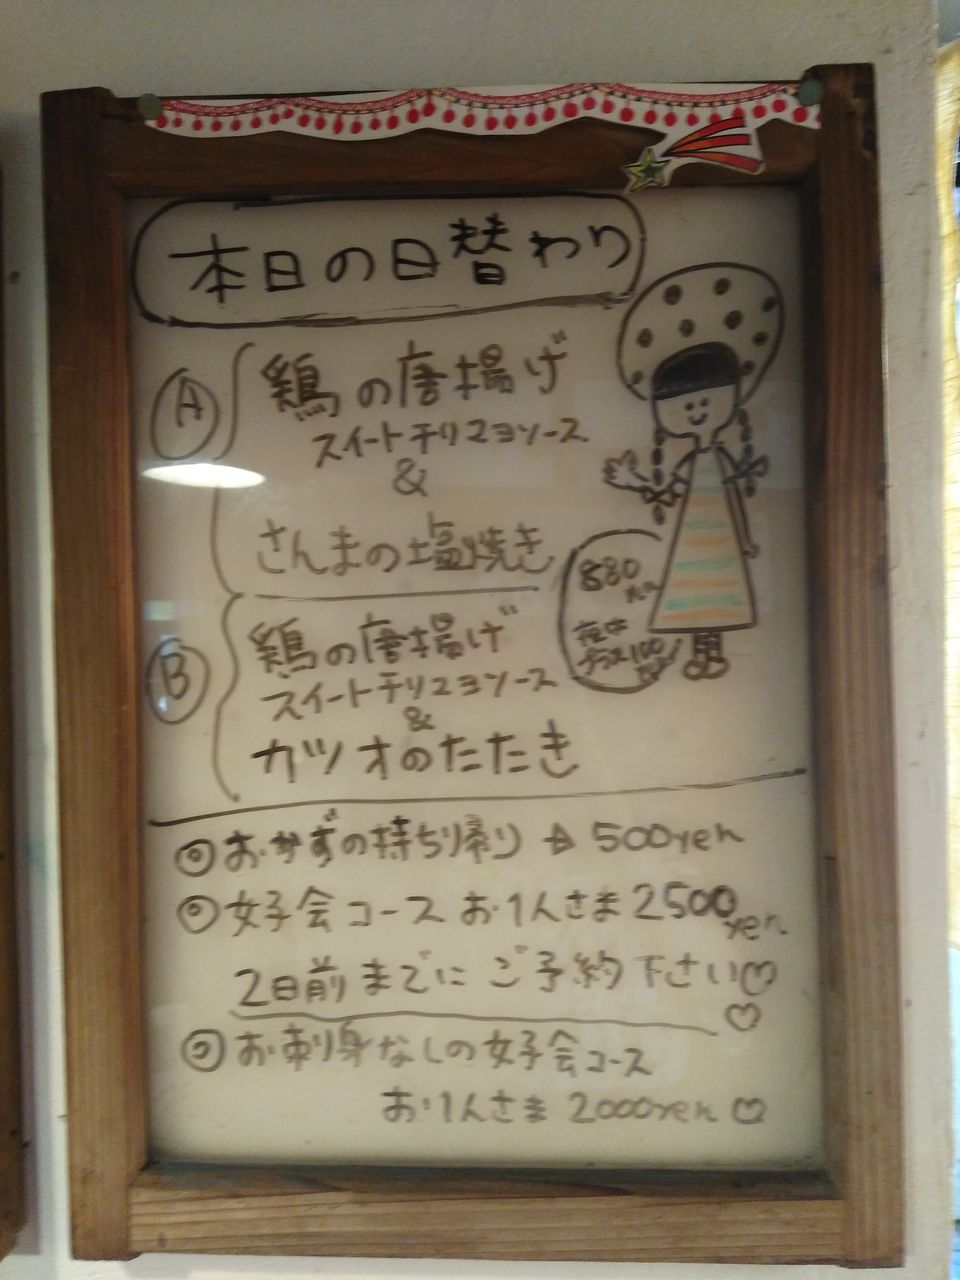 本日の日替わり
A
鶏の唐揚げ
スイートチリマヨソース
&
さんまの塩焼き
880
yen
夜は
プラス100
yen
B
鶏の唐揚げ
スイートチリマヨソース
&
カツオのたたき
◎おかずの持ち帰り ☆ 500yen
◎女子会コース お1人さま2500
yen
2日前までに ご予約下さい♡
♡
◎お刺身なしの女子会コース
お1人さま 2000yen♡